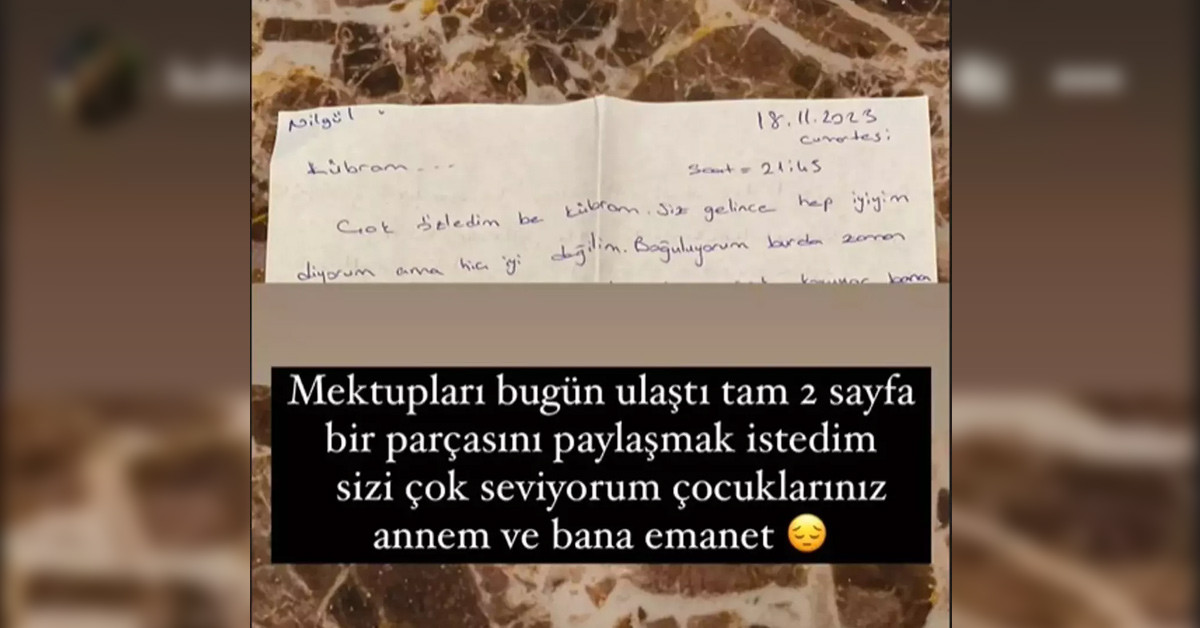 Nilgül
18.11.2023
Cumartesi
Kübram...
Saat = 21:45
Çok özledim be Kübram. Siz gelince hep iyiyim
diyorum ama hiç iyi değilim. Boğuluyorum burda zaman
bana
Mektupları bugün ulaştı tam 2 sayfa
bir parçasını paylaşmak istedim
sizi çok seviyorum çocuklarınız
annem ve bana emanet 😔